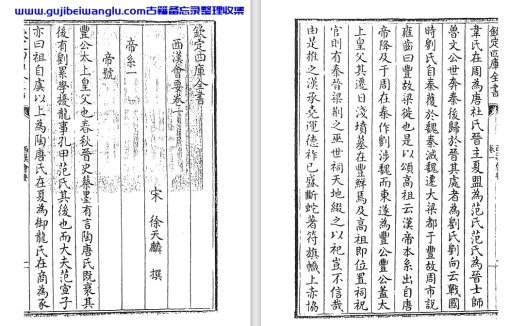 www.gujibeiwanglu.com古籍备忘录整理收集
欽定四庫全書
西漢會要卷一
宋 徐天麟 撰
帝系一
帝號
豐公太上皇父也春秋晉史蔡墨有言陶唐氏既衰其
後有劉累學擾龍事孔甲范氏其後也而大夫范宣子
亦曰祖自虞以上為陶唐氏在夏為御龍氏在商為豕
欽定四庫全書
韋氏在周為唐杜氏晉主夏盟為范氏范氏為晉士師
魯文公世奔秦後歸於晉其處者為劉氏劉向云戰國
時劉氏自秦獲於魏秦滅魏遷大梁都于豐故周市說
雍齒曰豐故梁徙也是以頌高祖云漢帝本系出自唐
帝降及于周在秦作劉涉魏而東遂為豐公豐公蓋太
上皇父其遷日淺墳墓在豐鮮焉及高祖即位置祠祀
官則有秦晉梁荆之巫世祠天地綴之以祀豈不信哉
由是推之漢承堯運德祚已盛斷蛇著符旗幟上赤協